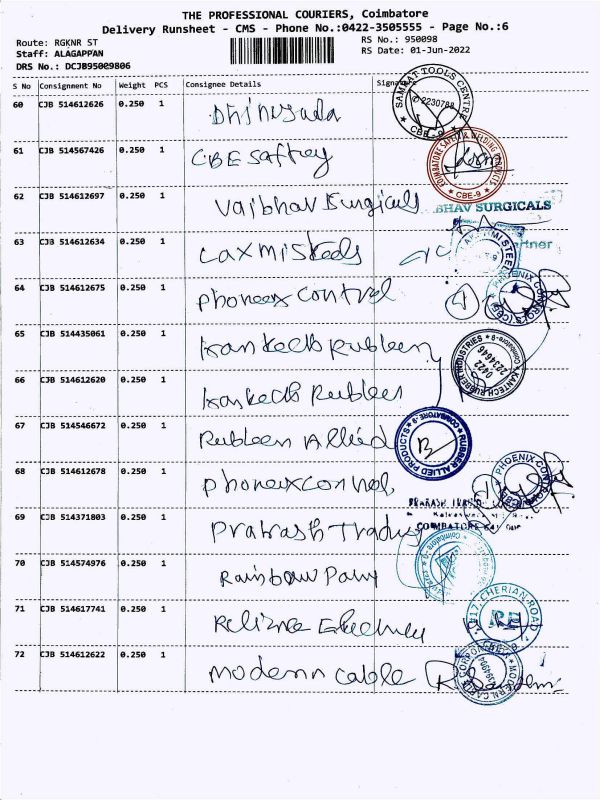 THE PROFESSIONAL COURIERS, Coimbatore
Delivery Runsheet - CMS - Phone No.:0422-3505555 - Page No.:6
Route: RGKNR ST
RS No.: 950098
Staff: ALAGAPPAN
RS Date: 01-Jun-2022
DRS No.: DCJB95009806
S No Consignment No Weight PCS Consignee Details Signature
60 CJB 514612626 0.250 1
SAMRAT TOOLS CENTRE 2230788 CBE-9
61 CJB 514567426 0.250 1 CBE Saftey
COIMBATORE SAFETY & WELDING PRODUCTS CBE-9
62 CJB 514612697 0.250 1 Vaibhav Surgicals
BHAV SURGICALS
63 CJB 514612634 0.250 1 Laxmi Steels
LAKSHMI STEE
rtner
64 CJB 514612675 0.250 1 Phoneex Control
PHOENIX CONTROLS CBE
65 CJB 514435061 0.250 1
KANTECH RUBBER INDUSTRIES 0422 2234646 Coimbatore-9
66 CJB 514612620 0.250 1
67 CJB 514546672 0.250 1 Rubleer Allied
RUBBER ALLIED PRODUCTS COIMBATORE
68 CJB 514612678 0.250 1 Phoneex Control
PHOENIX CONTROL
69 CJB 514371803 0.250 1 Prakash Trading
COIMBATORE
70 CJB 514574976 0.250 1 Rainbow
Coimbatore
71 CJB 514617741 0.250 1
117, CHERIAN ROAD CBE-9
72 CJB 514612622 0.250 1 Modern Cable
MODERN CABLE CORPORATION